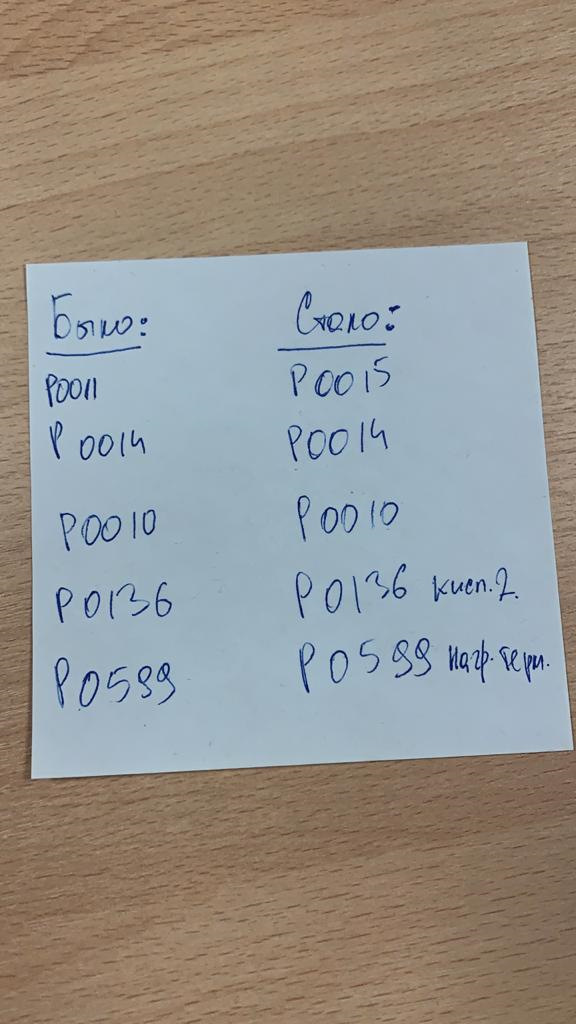 Было: Стало:
P0011 P0015
P0014 P0014
P0010 P0010
P0136 P0136 кисл.2.
P0599 P0599 нагр. терм.